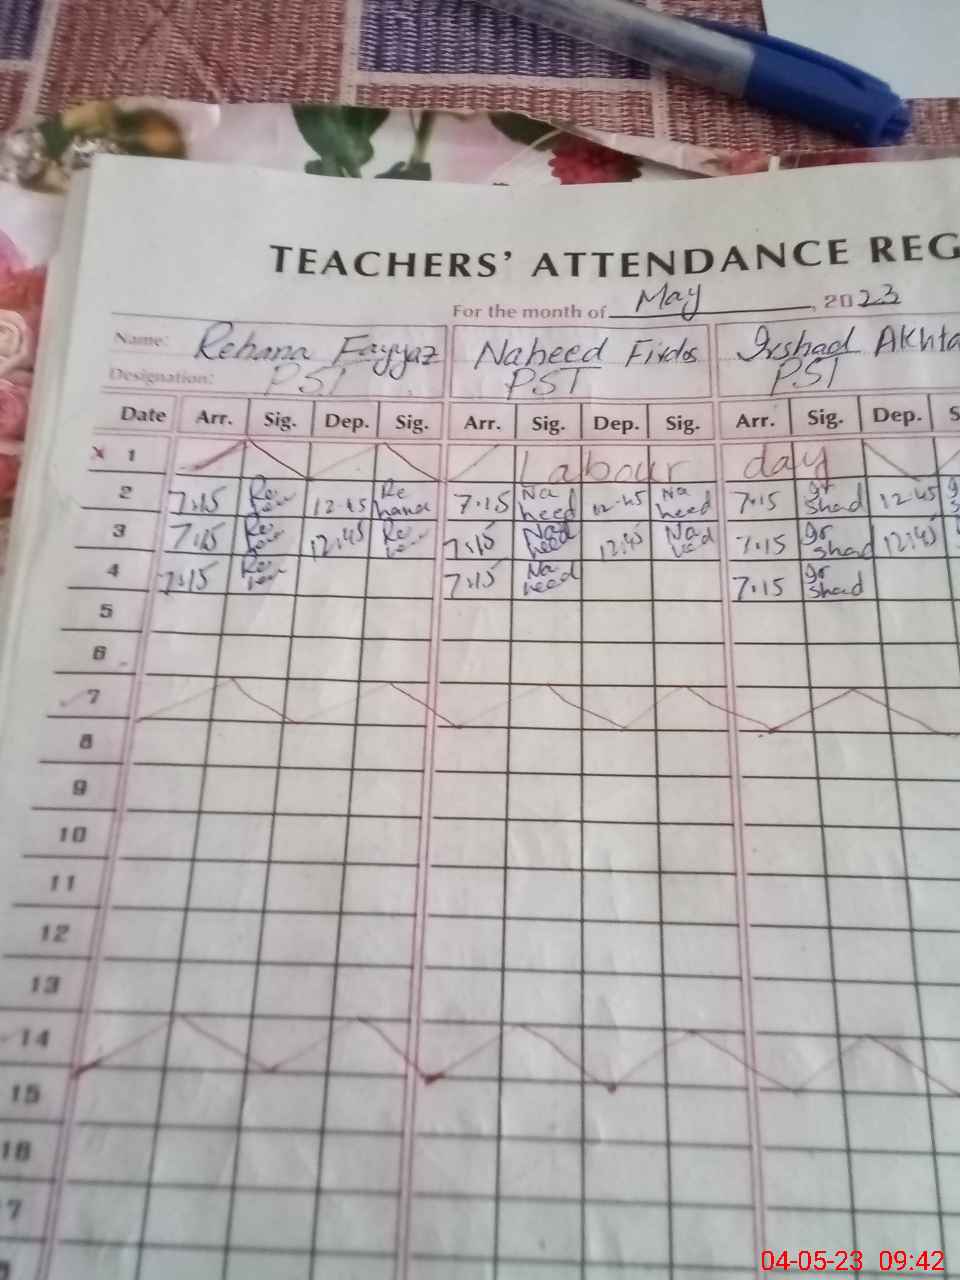 TEACHERS' ATTENDANCE REG
For the month of May, 2023
Name: Rehana Fayyaz Naheed Firdos Irshad Akhta
Designation: PST PST PST
Date Arr. Sig. Dep. Sig. Arr. Sig. Dep. Sig. Arr. Sig. Dep. S
x 1 Labour day
2 7:15 12-45 Re hana 7:15 Na heed 12-45 Na heed 7:15 Ir shad 12:45
3 7:15 12:45 7:15 Na heed 12:45 7:15 Ir shad 12:45
4 7:15 7:15 Na heed 7:15 Ir shad
5
6
7
8
9
10
11
12
13
14
15
16
7
04-05-23 09:42